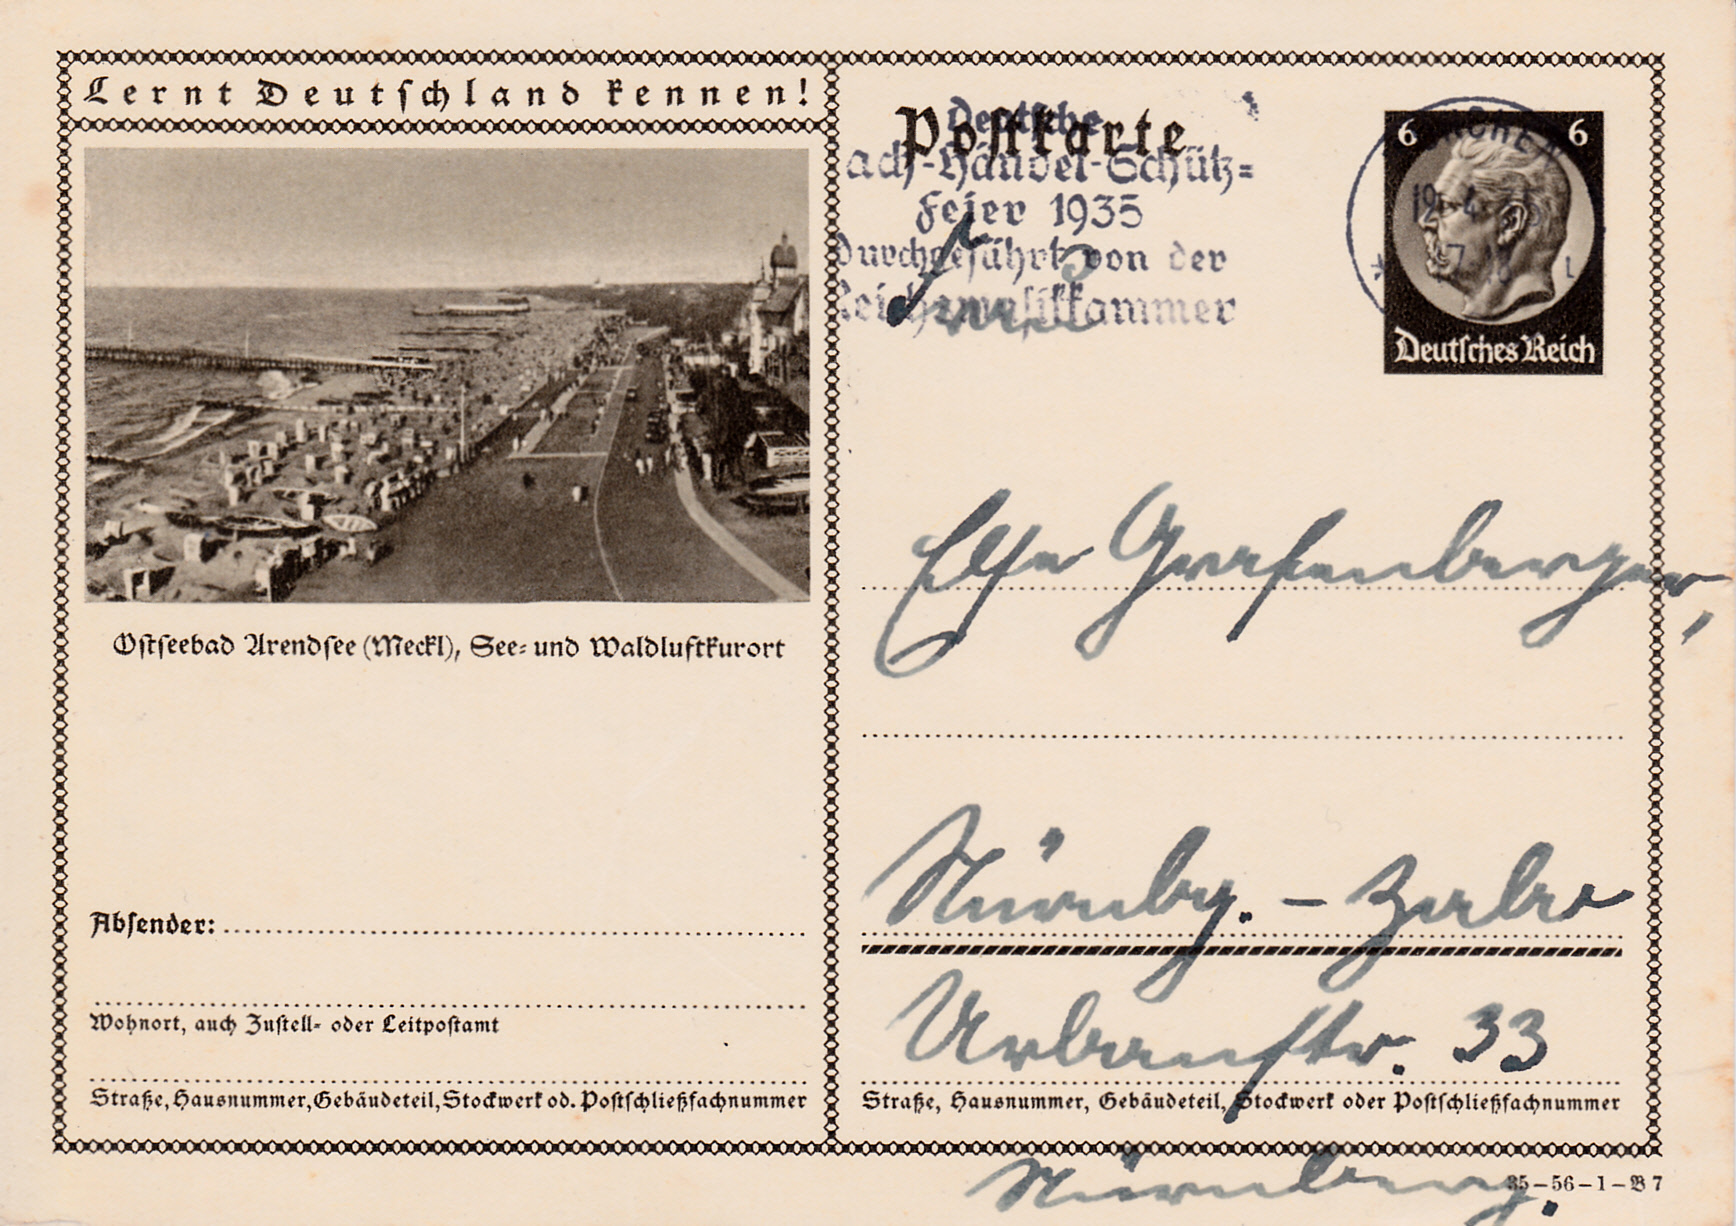 Lernt Deutschland kennen!
Ostseebad Arendsee (Meckl), See- und Waldluftkurort
Absender:
Wohnort, auch Zustell- oder Leitpostamt
Straße, Hausnummer, Gebäudeteil, Stockwerk od. Postschließfachnummer
Postkarte
Deutsche
ach-Händel-Schütz-
Feier 1935
durchgeführt von der
Reichsmusikkammer
6 6
Deutsches Reich
Else Grafenberger,
Nürnbg. –
Urbanstr. 33
Straße, Hausnummer, Gebäudeteil, Stockwerk oder Postschließfachnummer
Nürnberg.
35-56-1-B7